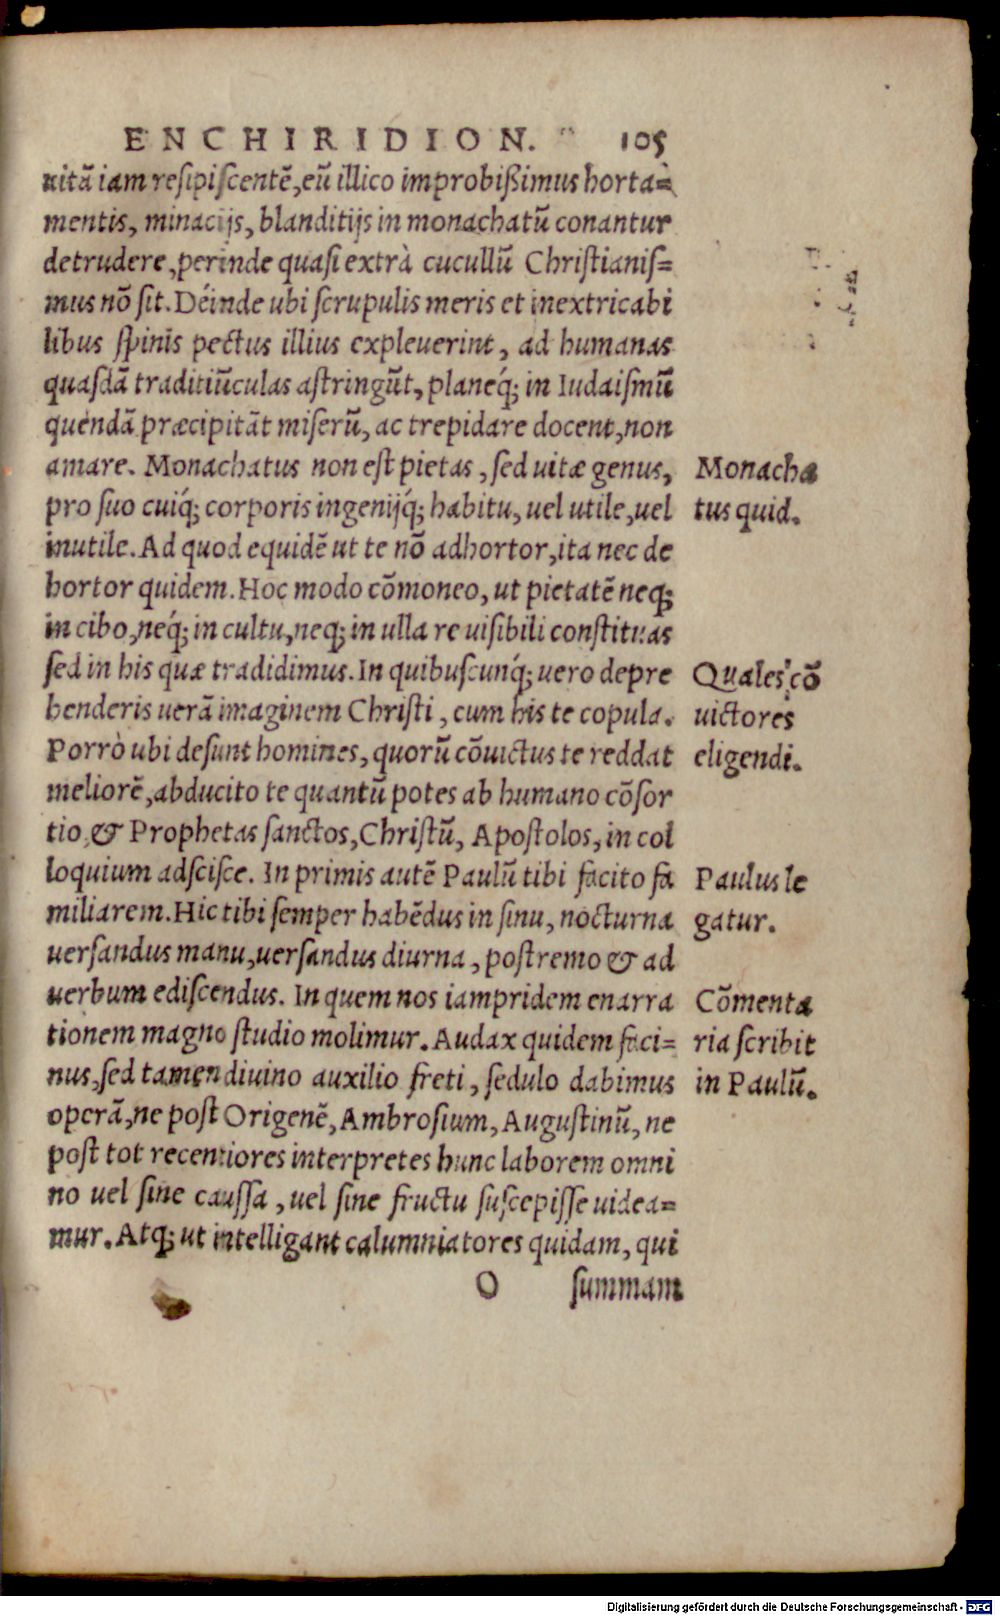 ENCHIRIDION. 105
uitã iam resipiscentẽ, eũ illico improbißimus horta=
mentis, minacijs, blanditijs in monachatũ conantur
detrudere, perinde quasi extrà cucullũ Christianis=
mus nõ sit. Déinde ubi scrupulis meris et inextricabi
libus spinis pectus illius expleuerint, ad humanas
quasdã traditiũculas astringũt, planeq́; in Iudaismũ
quendã præcipitãt miserũ, ac trepidare docent, non
amare. Monachatus non est pietas, sed uitæ genus,
pro suo cuiq́; corporis ingenijq́; habitu, uel utile, uel
inutile. Ad quod equidẽ ut te nõ adhortor, ita nec de
hortor quidem. Hoc modo cõmoneo, ut pietatẽ neq;
in cibo, neq́; in cultu, neq; in ulla re uisibili constituas
sed in his quæ tradidimus. In quibuscunq́; uero depre
henderis uerã imaginem Christi, cum his te copula.
Porrò ubi desunt homines, quorũ cõuictus te reddat
meliorẽ, abducito te quantũ potes ab humano cõsor
tio, & Prophetas sanctos, Christũ, Apostolos, in col
loquium adscisce. In primis autẽ Paulũ tibi facito fa
miliarem. Hic tibi semper habẽdus in sinu, nocturna
uersandus manu, uersandus diurna, postremo & ad
uerbum ediscendus. In quem nos iampridem enarra
tionem magno studio molimur. Audax quidem faci=
nus, sed tamen diuino auxilio freti, sedulo dabimus
operã, ne post Origenẽ, Ambrosium, Augustinũ, ne
post tot recentiores interpretes hunc laborem omni
no uel sine caussa, uel sine fructu suscepisse uidea=
mur. Atq; ut intelligant calumniatores quidam, qui
O summam
Monacha
tus quid.
Quales cõ
uictores
eligendi.
Paulus le
gatur.
Cõmenta
ria scribit
in Paulũ.
Digitalisierung gefördert durch die Deutsche Forschungsgemeinschaft - DFG